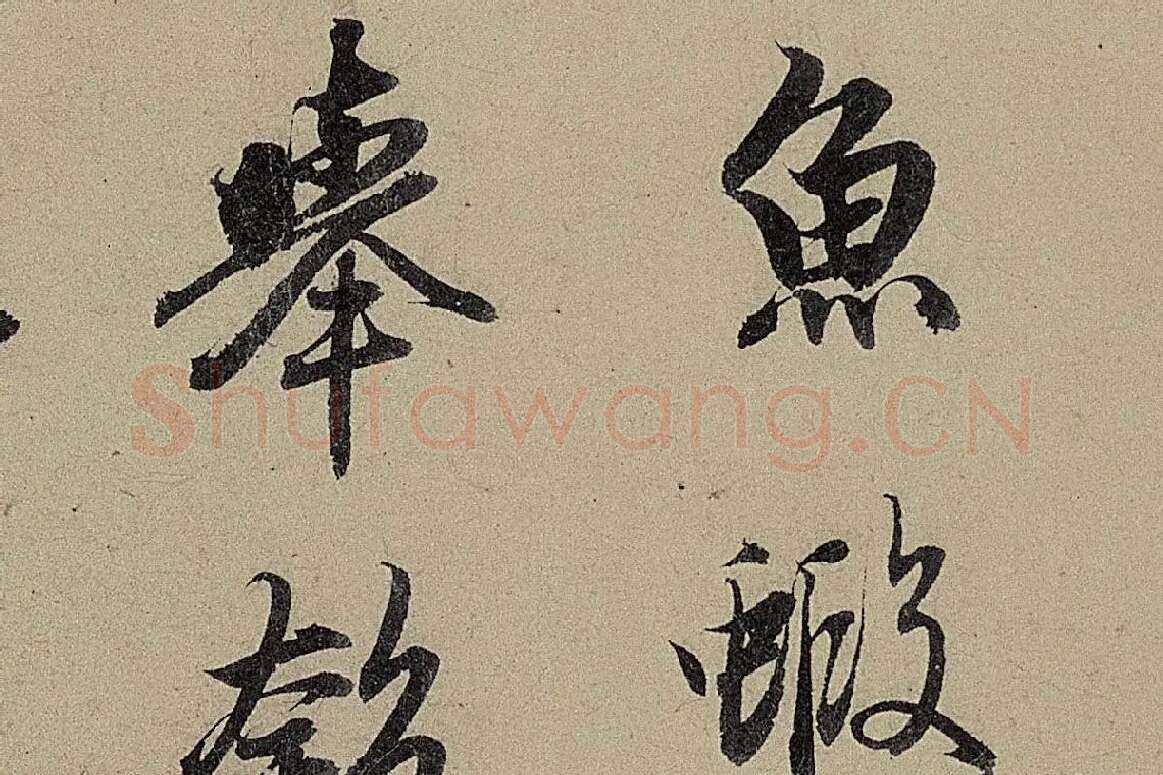 魚蝦
舉匏
Shufawang.CN